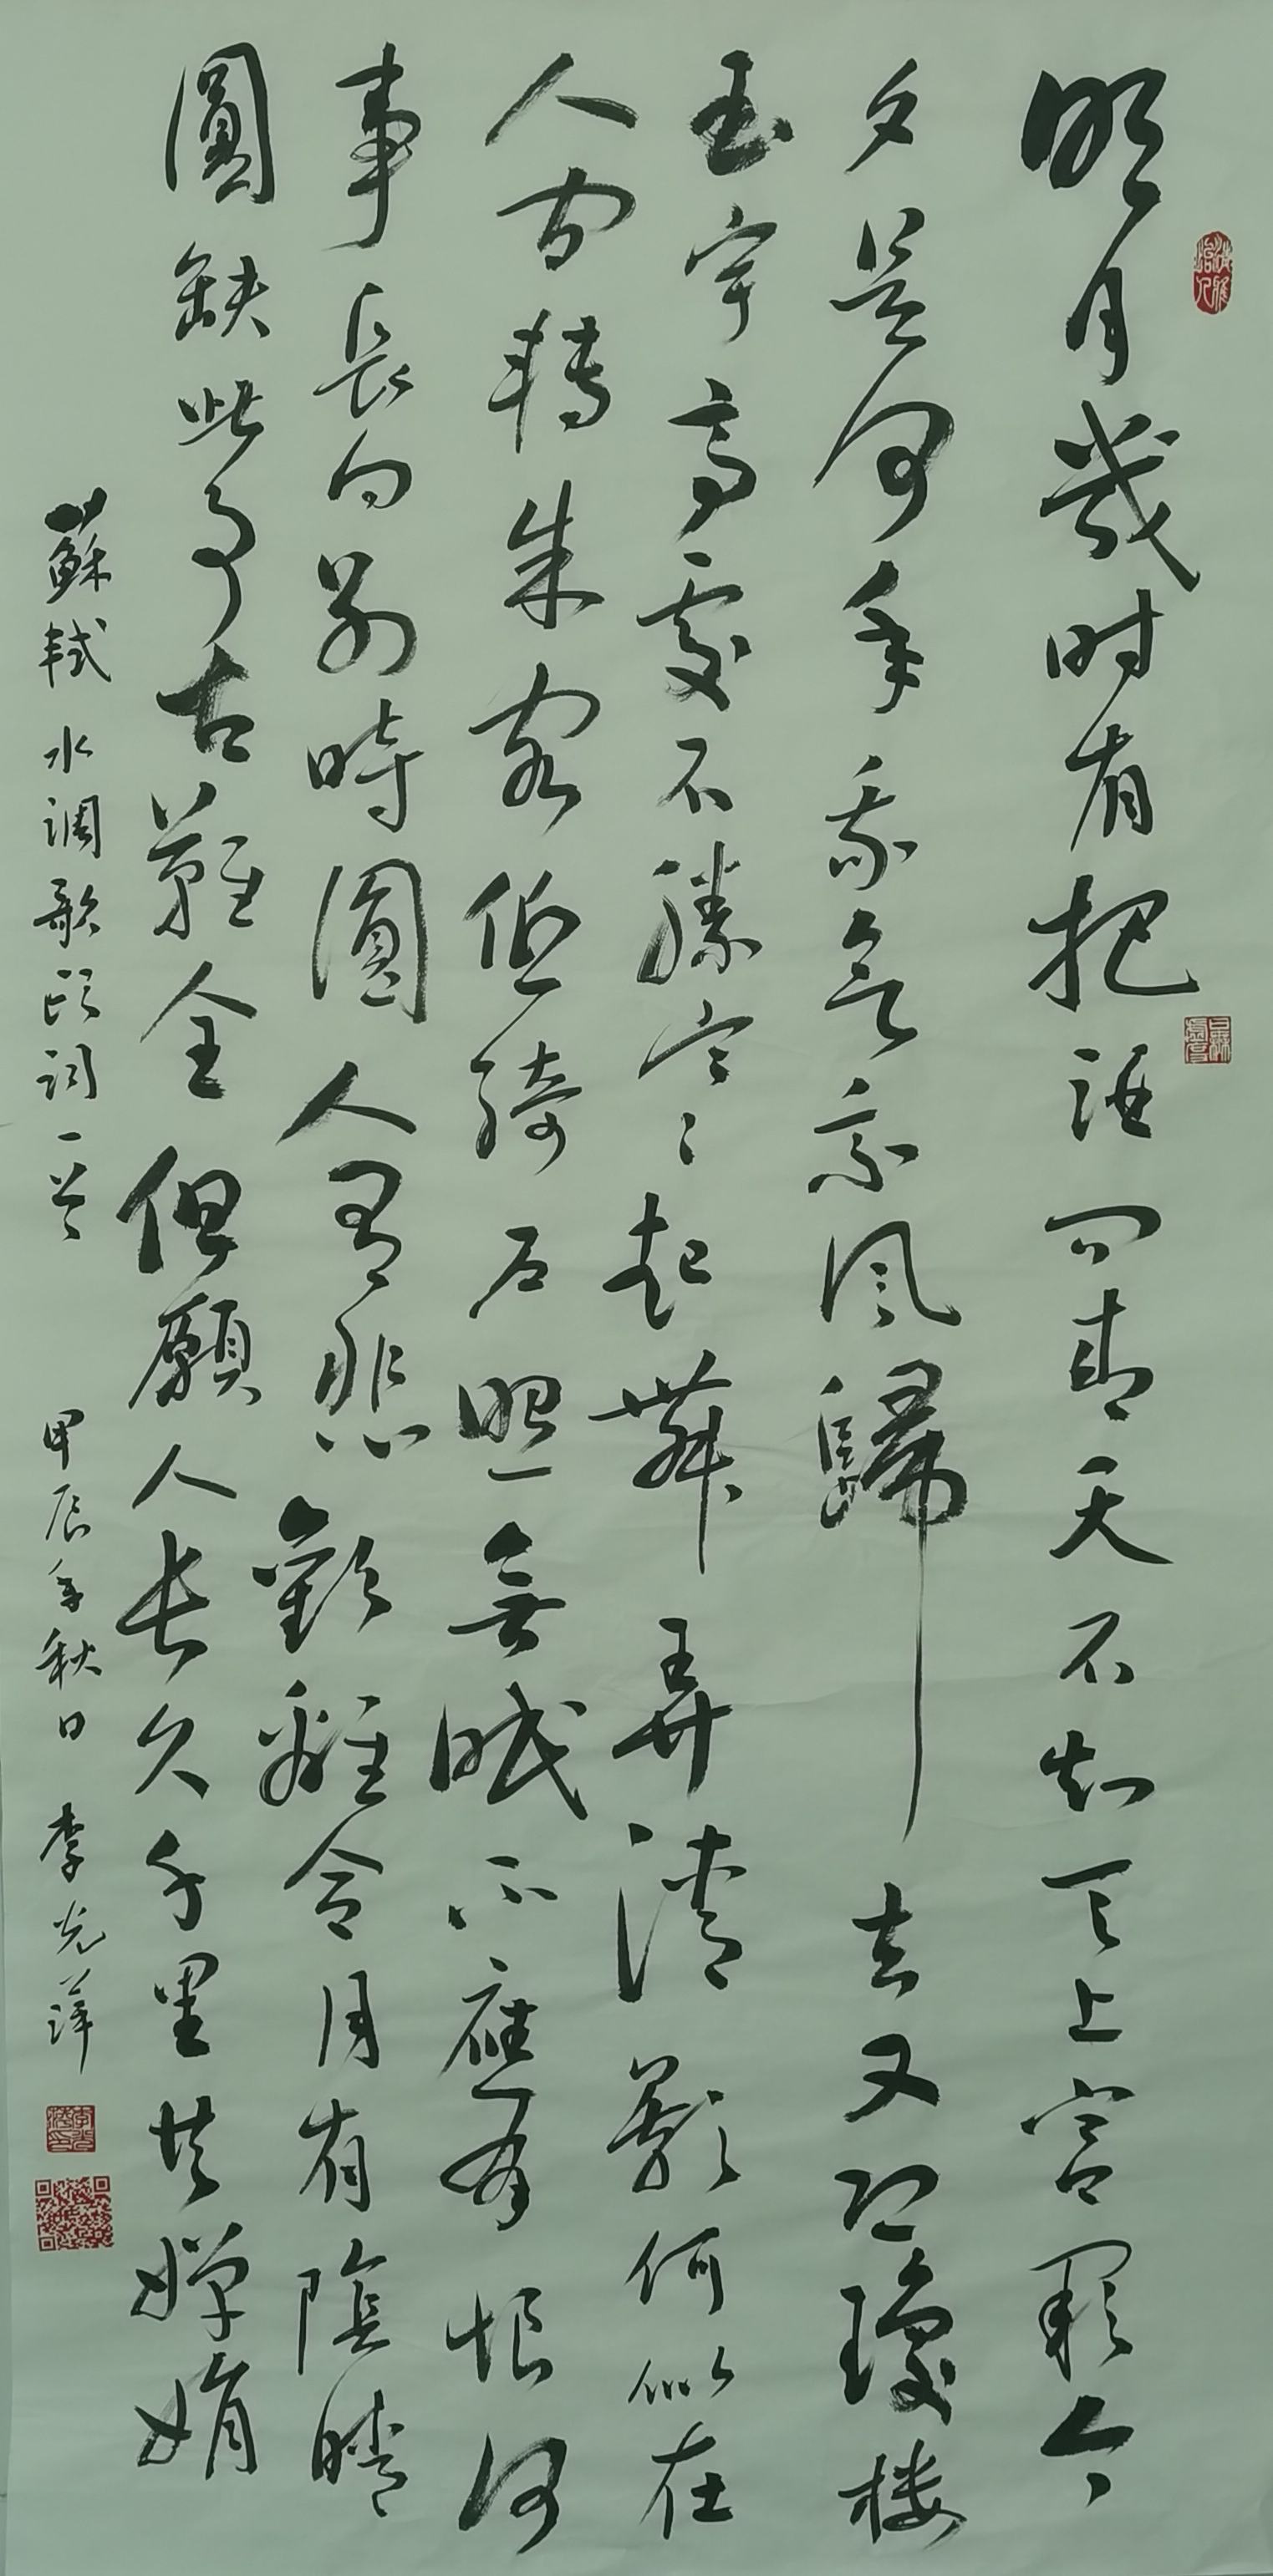 明月幾时有把酒问青天不知天上宫阙今
夕是何年我欲乘风歸去又恐瓊楼
玉宇高處不勝寒〻起舞弄清影何似在
人间转朱客低綺户照無眠不應有恨何
事長向别時圓人有悲歡離合月有陰晴
圓缺此事古難全但願人长久千里共嬋娟
蘇轼水调歌头词一首 甲辰年秋日 李光萍